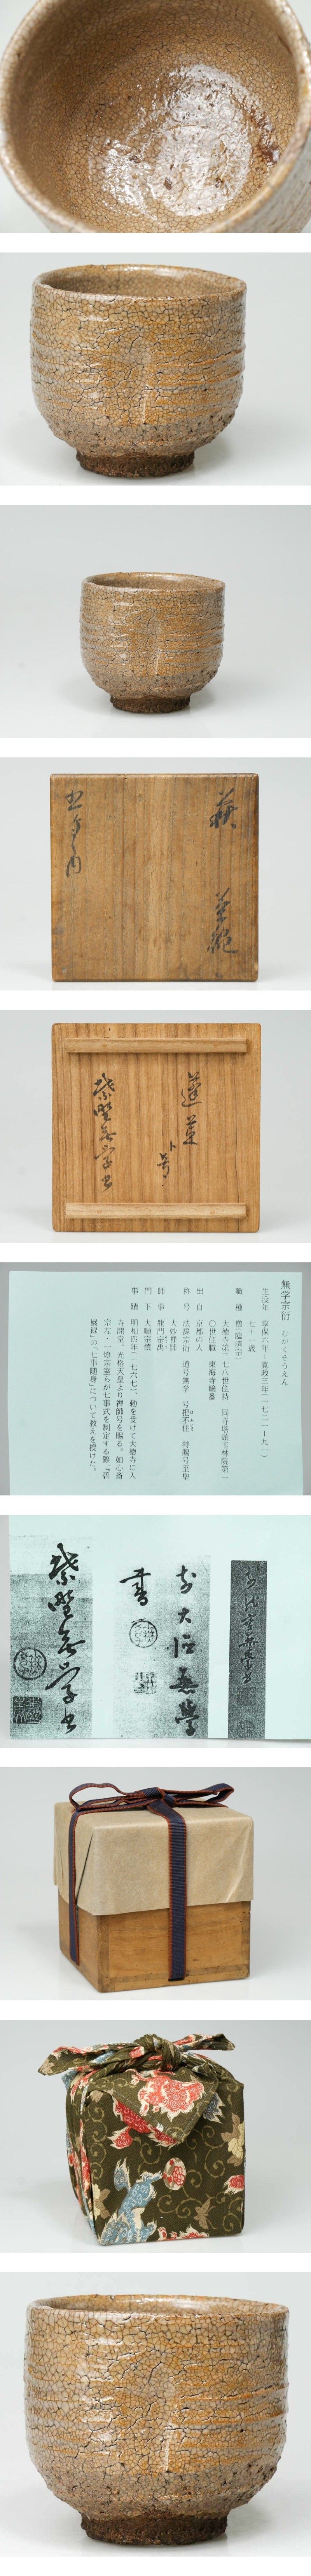 萩
茶碗
五ケ之内
蓬莱
ト号
紫野無学書
無学宗衍 むがくそうえん
生没年 享保六年―寛政三年(一七二一―九一)
七十一歳
職種 僧(臨済宗)
大徳寺第三七八世住持 同寺塔頭玉林院第一
〇世住職 東海寺輪番
出自 京都の人
称号 法諱宗衍 道号無学 号把不住 特賜号至聖
大妙禅師
師事 龍門宗禹
門下 大順宗慎
事蹟 明和四年(一七六七)、勅を受けて大徳寺に入
寺開堂。光格天皇より禅師号を賜る。如心斎
宗左・一燈宗室らが七事式を制定する際、『碧
巌録』の「七事随身」について教えを授けた。
前大徳無学
書
紫野無学書